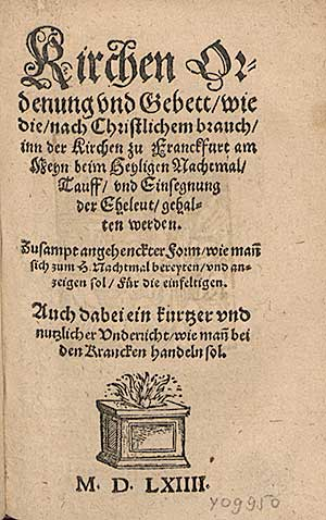 Kirchen Or-
denung vnd Gebett/wie
die/nach Christlichem brauch/
inn der Kirchen zu Franckfurt am
Meyn beim Heyligen Nachtmal/
Tauff/ vnd Einsegnung
der Eheleut/ gehal-
ten werden.
Zusampt angehenckter Form/wie mañ
sich zum H. Nachtmal bereyten/vnd an-
zeigen sol/ Für die einfeltigen.
Auch dabei ein kurtzer vnd
nutzlicher Vnderricht/wie mañ bei
den Krancken handeln sol.
M. D. LXIIII.
409950